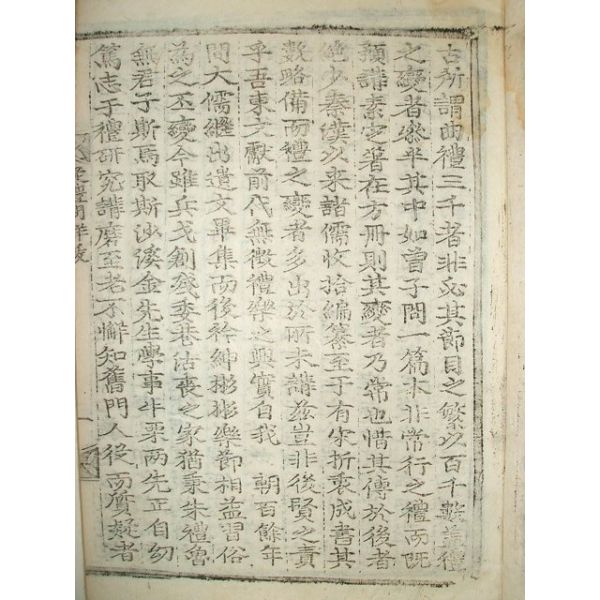 古所謂曲禮三千者非必其節目之繁以百千數盖禮
之變者參半其中如曾子問一篇本非常行之禮而旣
預講素定著在方冊則其變者乃常也惜其傳於後者
絶少秦漢以来諸儒收拾編纂至于有宋折衷成書其
數略備而禮之變者多出於所未講玆豈非後賢之責
乎吾東文獻前代無徵禮樂之興實自我 朝百餘年
間大儒繼出遺文畢集而後衿紳彬彬樂節相益習俗
為之丕變今雖兵戈創殘委巷治喪之家猶秉朱禮魯
無君子斯焉取斯沙溪金先生學事牛栗两先正自幼
篤志于禮研究講磨至老不懈知舊門人從而質疑者